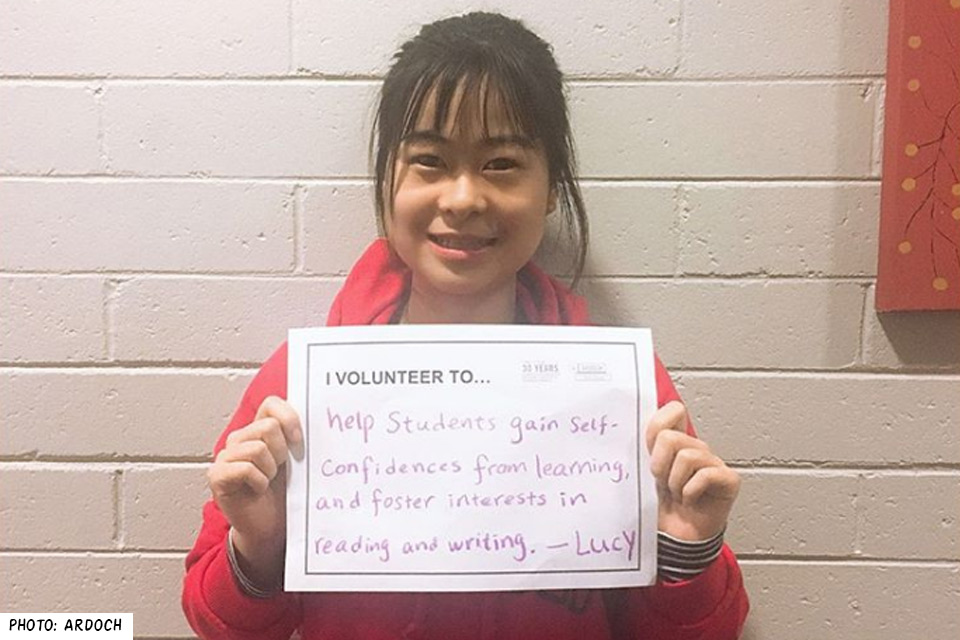 I VOLUNTEER TO...
30 YEARS
help Students gain Self-
Confidences from learning,
and foster interests in
reading and writing. — Lucy
PHOTO: ARDOCH